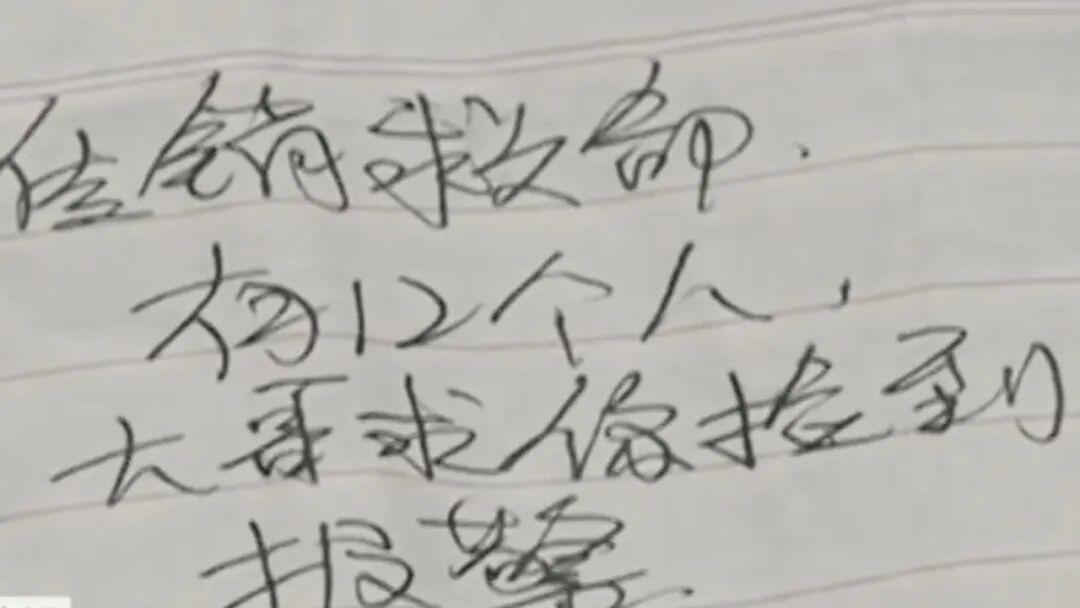 传销求救命.
有12个人,
大哥求你捡到
报警.